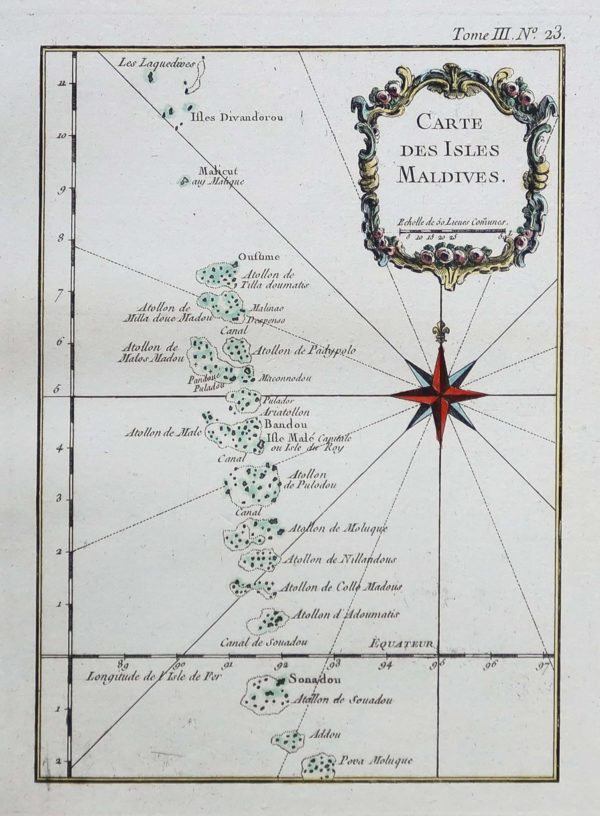 Tome III. Nº. 23.
CARTE
DES ISLES
MALDIVES.
Echelle de 50 Lieues Comunes.
5 10 15 20 25 50
Les Laquedives
Isles Divandorou
Malicut
ou Malique
Oustime
Atollon de
Tilla doumatis
Atollon de
Milla doue Madou
Malinao
Despenso
Canal
Atollon de
Malos Madou
Atollon de Padypolo
Pandoue
Puladou
Maconnodou
Pulador
Ariatollon
Bandou
Atollon de Male
Isle Malé Capitale
ou Isle du Roy
Canal
Atollon
de Pulodou
Canal
Atollon de Moluque
Atollon de Nillandous
Atollon de Collo Madous
Atollon d'Adoumatis
Canal de Souadou
ÉQUATEUR
89 90 91 92 93 94 95 96 97
Longitude de l'Isle de Fer
Souadou
Atollon de Souadou
Addou
Pova Moluque
11
10
9
8
7
6
5
4
3
2
1
1
2